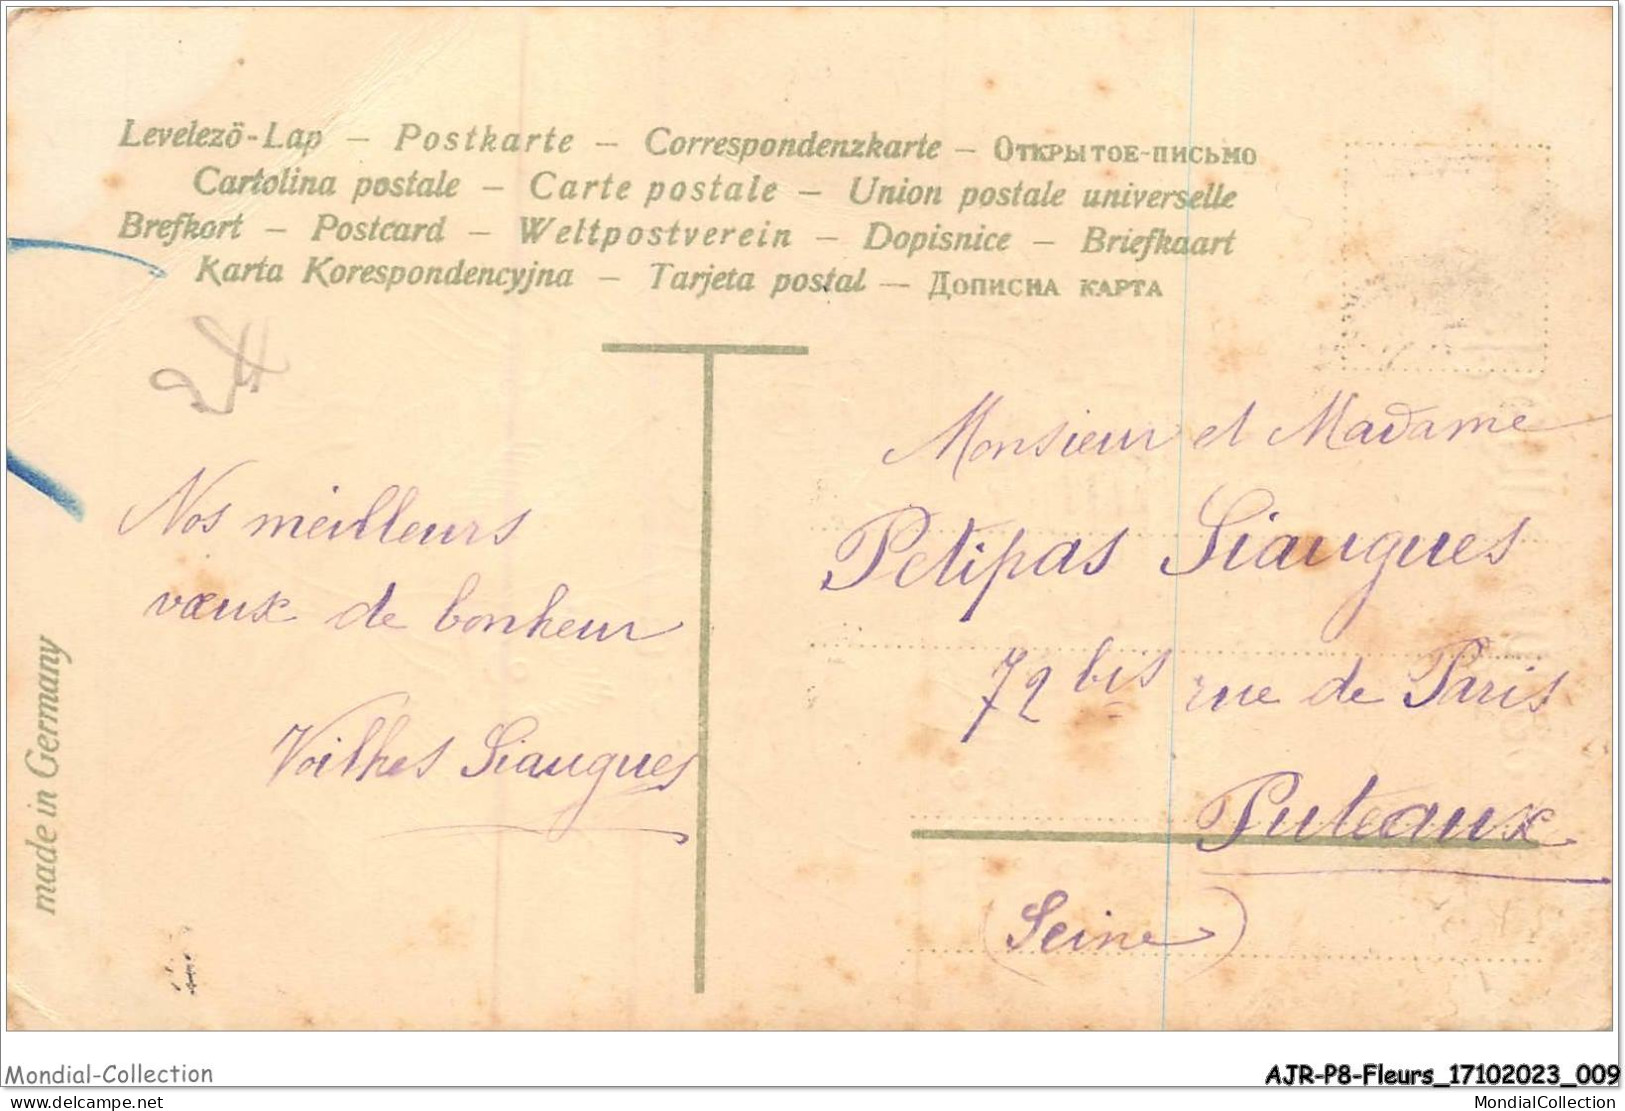 Levelező-Lap – Postkarte – Correspondenzkarte – Открытое-письмо
Cartolina postale – Carte postale – Union postale universelle
Brefkort – Postcard – Weltpostverein – Dopisnice – Briefkaart
Karta Korespondencyjna – Tarjeta postal – Дописна карта
Nos meilleurs
vœux de bonheur
Voilhes Siaugues
Monsieur et Madame
Petipas Siaugues
72 bis rue de Paris
Puteaux
(Seine)
made in Germany
Mondial-Collection
AJR-P8-Fleurs_17102023_009
www.delcampe.net
MondialCollection